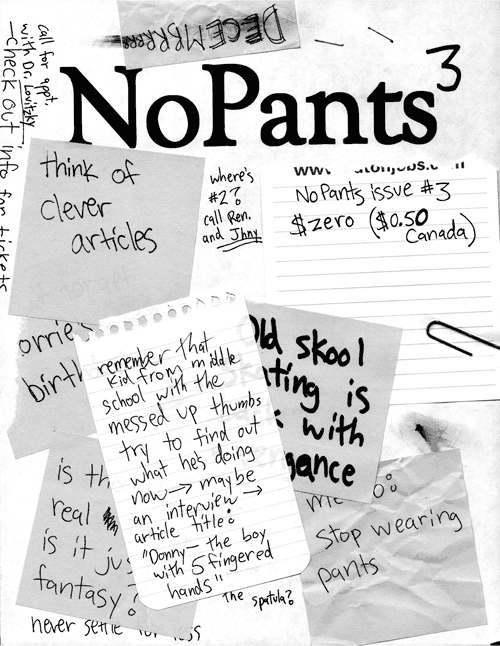 DECEMBRRRR
call for appt.
with Dr. Lovitzky
-check out info for tickets
NoPants
3
think of
clever
articles
where's
#2?
call Ren.
and Jhny
NoPants issue #3
$zero ($0.50
Canada)
remember that
kid from middle
school with the
messed up thumbs
try to find out
what he's doing
now → maybe
an interview →
article title:
"Donny - the boy
with 5 fingered
hands"
Old skool
is
with
is
real
is it
fantasy?
stop wearing
pants
The spatula?
never settle for less